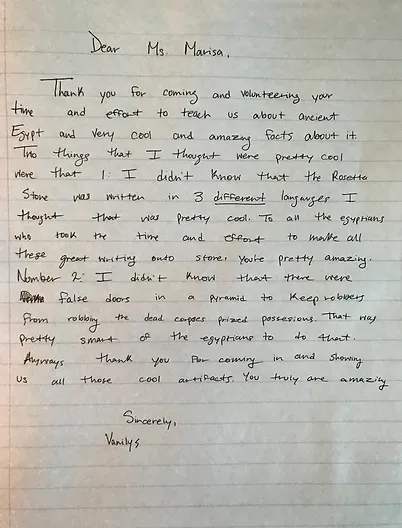 Dear Ms. Marisa,
Thank you for coming and volunteering your
time and effort to teach us about ancient
Egypt and very cool and amazing facts about it.
Two things that I thought were pretty cool
were that 1: I didn't know that the Rosetta
Stone was written in 3 different languages I
thought that was pretty cool. To all the egyptians
who took the time and effort to make all
these great writing onto stone, you're pretty amazing.
Number 2: I didn't know that there were
false doors in a pyramid to keep robbers
from robbing the dead corpses prized possesions. That was
pretty smart of the egyptians to do that.
Anyways thank you for coming in and showing
us all those cool artifacts. You truly are amazing
Sincerely,
Vanilys